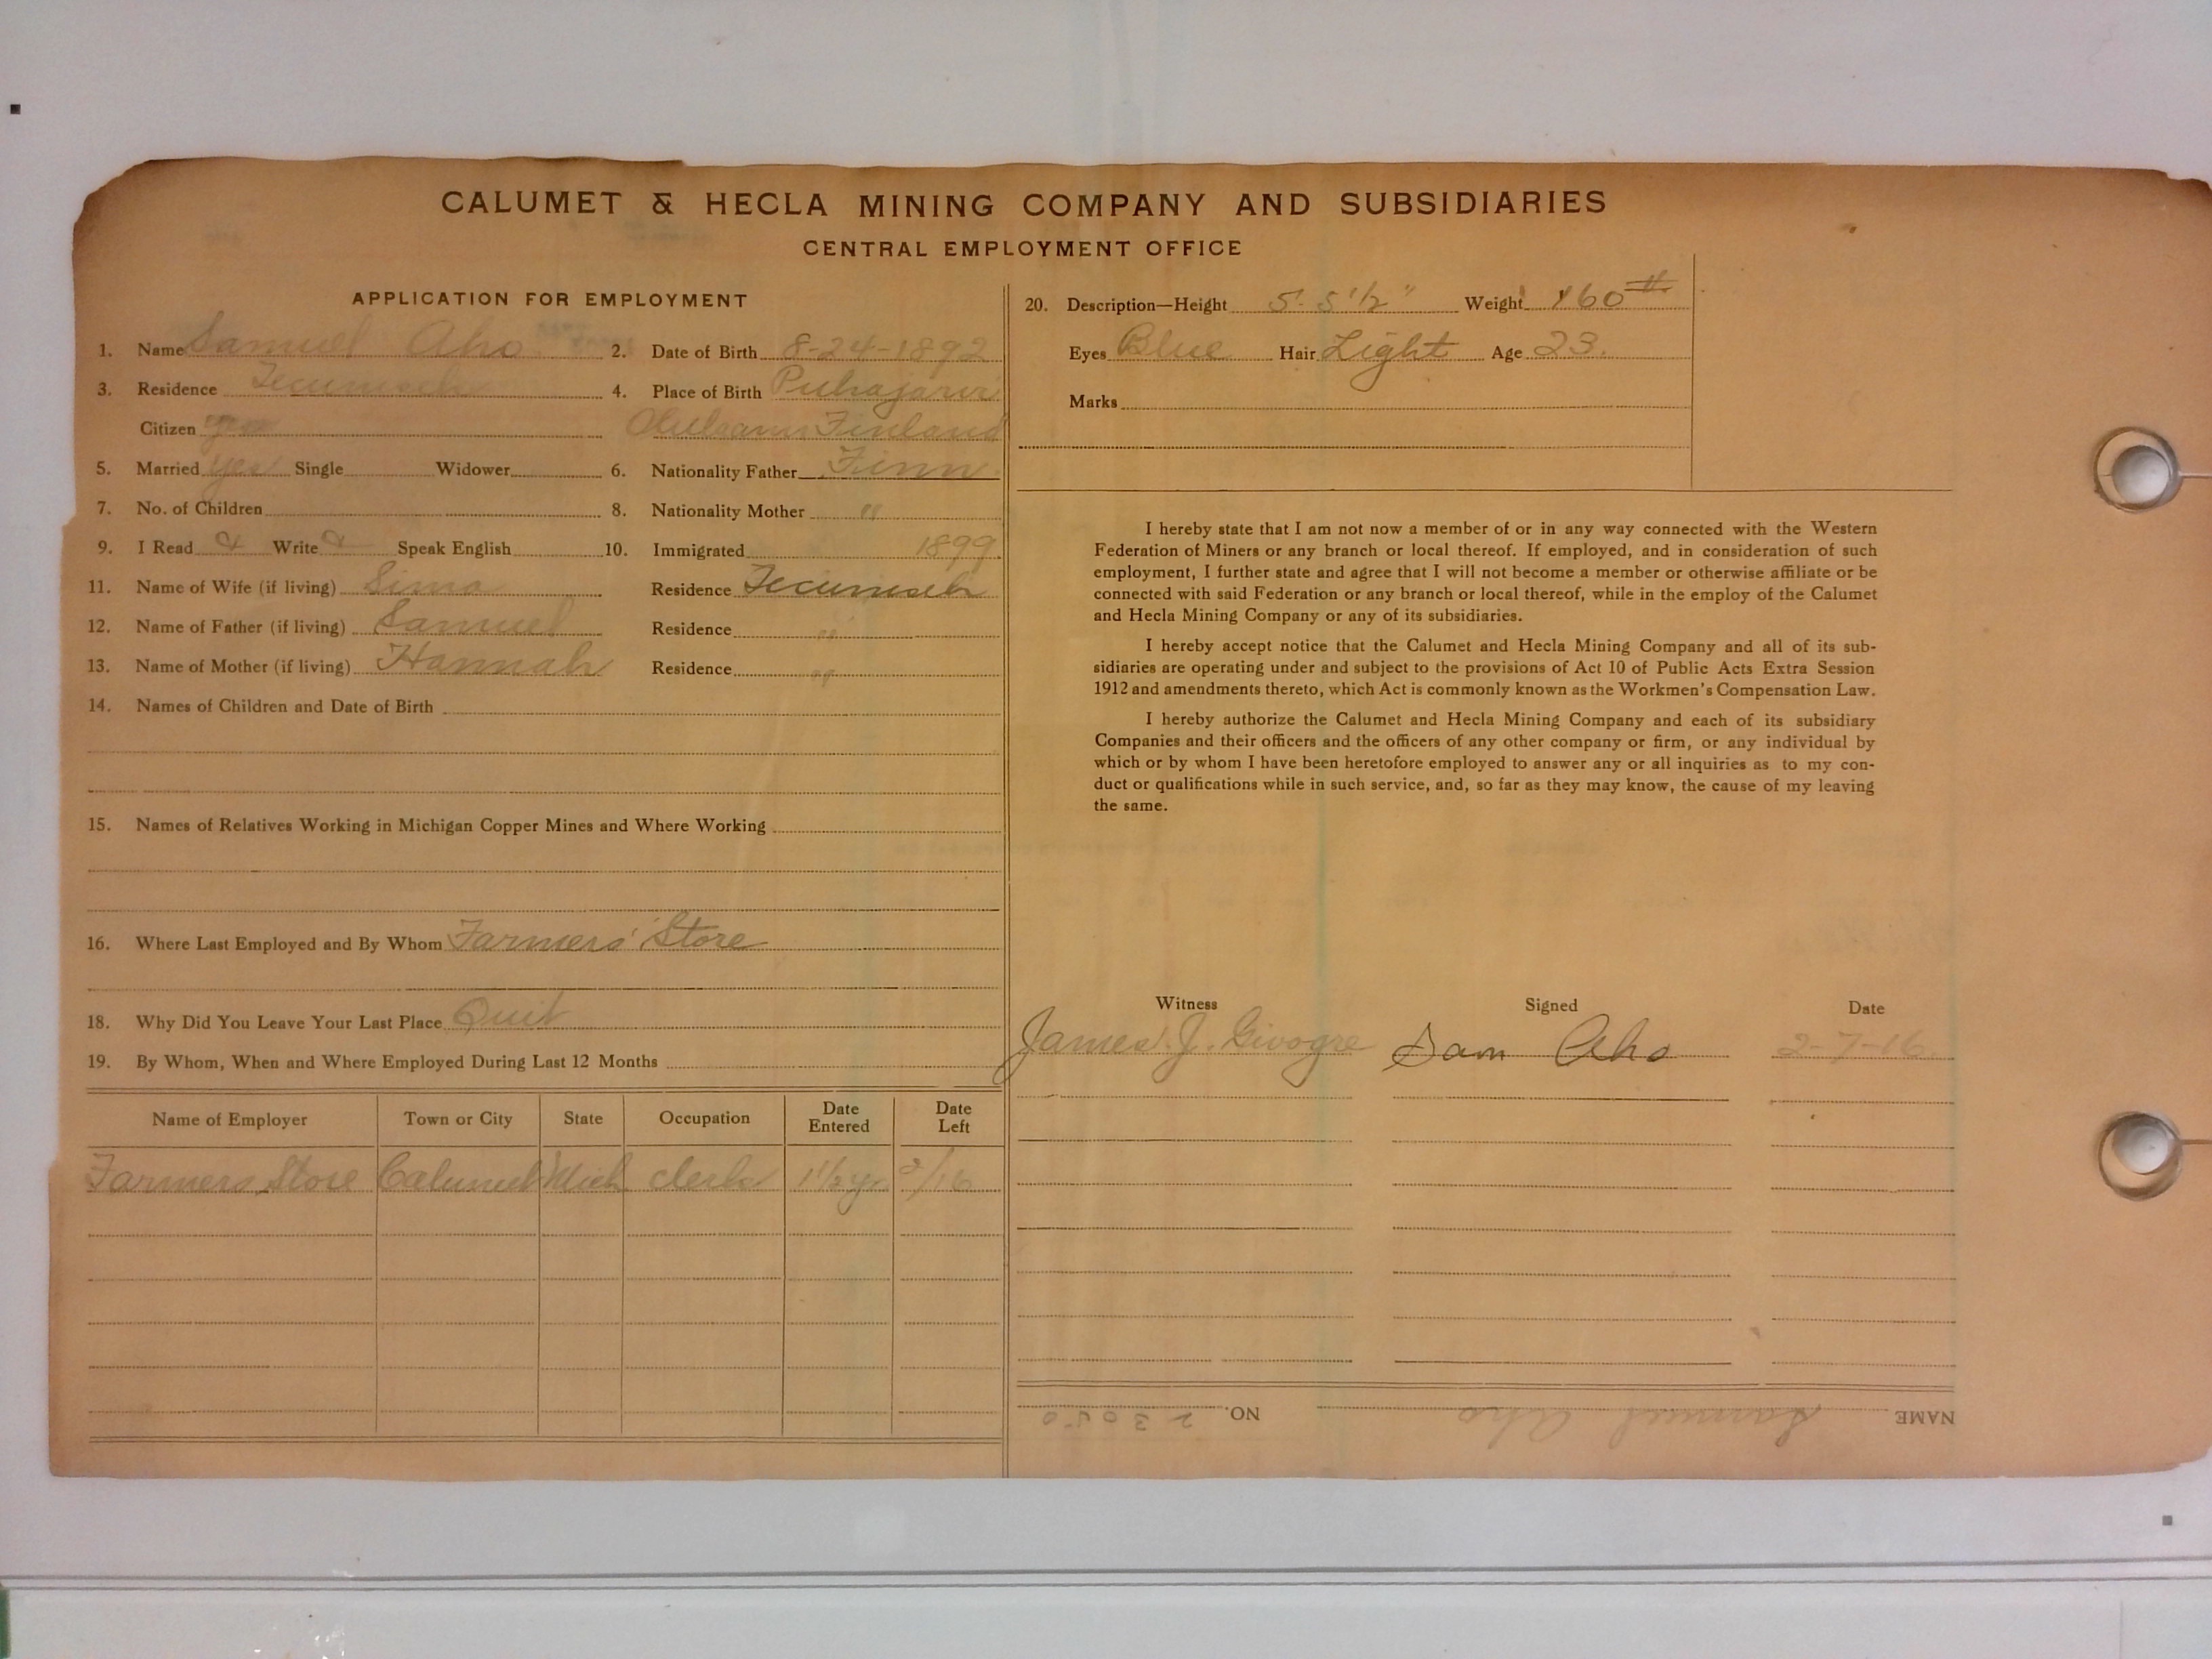 CALUMET & HECLA MINING COMPANY AND SUBSIDIARIES
CENTRAL EMPLOYMENT OFFICE
APPLICATION FOR EMPLOYMENT
1. Name Samuel Aho 2. Date of Birth 8-24-1892
3. Residence Tecumseh 4. Place of Birth Puhajarvi
Citizen yes Finland
5. Married yes Single Widower 6. Nationality Father Finn
7. No. of Children 8. Nationality Mother "
9. I Read Write Speak English 10. Immigrated 1899
11. Name of Wife (if living) Sima Residence Tecumseh
12. Name of Father (if living) Samuel Residence "
13. Name of Mother (if living) Hannah Residence "
14. Names of Children and Date of Birth
15. Names of Relatives Working in Michigan Copper Mines and Where Working
16. Where Last Employed and By Whom Farmers' Store
18. Why Did You Leave Your Last Place Quit
19. By Whom, When and Where Employed During Last 12 Months
Name of Employer Town or City State Occupation Date Entered Date Left
Farmers Store Calumet Mich clerk 1 1/2 yr 2/16
20. Description—Height 5' 5 1/2" Weight 160 #
Eyes Blue Hair Light Age 23.
Marks
I hereby state that I am not now a member of or in any way connected with the Western
Federation of Miners or any branch or local thereof. If employed, and in consideration of such
employment, I further state and agree that I will not become a member or otherwise affiliate or be
connected with said Federation or any branch or local thereof, while in the employ of the Calumet
and Hecla Mining Company or any of its subsidiaries.
I hereby accept notice that the Calumet and Hecla Mining Company and all of its sub-
sidiaries are operating under and subject to the provisions of Act 10 of Public Acts Extra Session
1912 and amendments thereto, which Act is commonly known as the Workmen's Compensation Law.
I hereby authorize the Calumet and Hecla Mining Company and each of its subsidiary
Companies and their officers and the officers of any other company or firm, or any individual by
which or by whom I have been heretofore employed to answer any or all inquiries as to my con-
duct or qualifications while in such service, and, so far as they may know, the cause of my leaving
the same.
Witness Signed Date
James J. Givogre Sam Aho 2-7-16.
NAME Samuel Aho NO. 23050